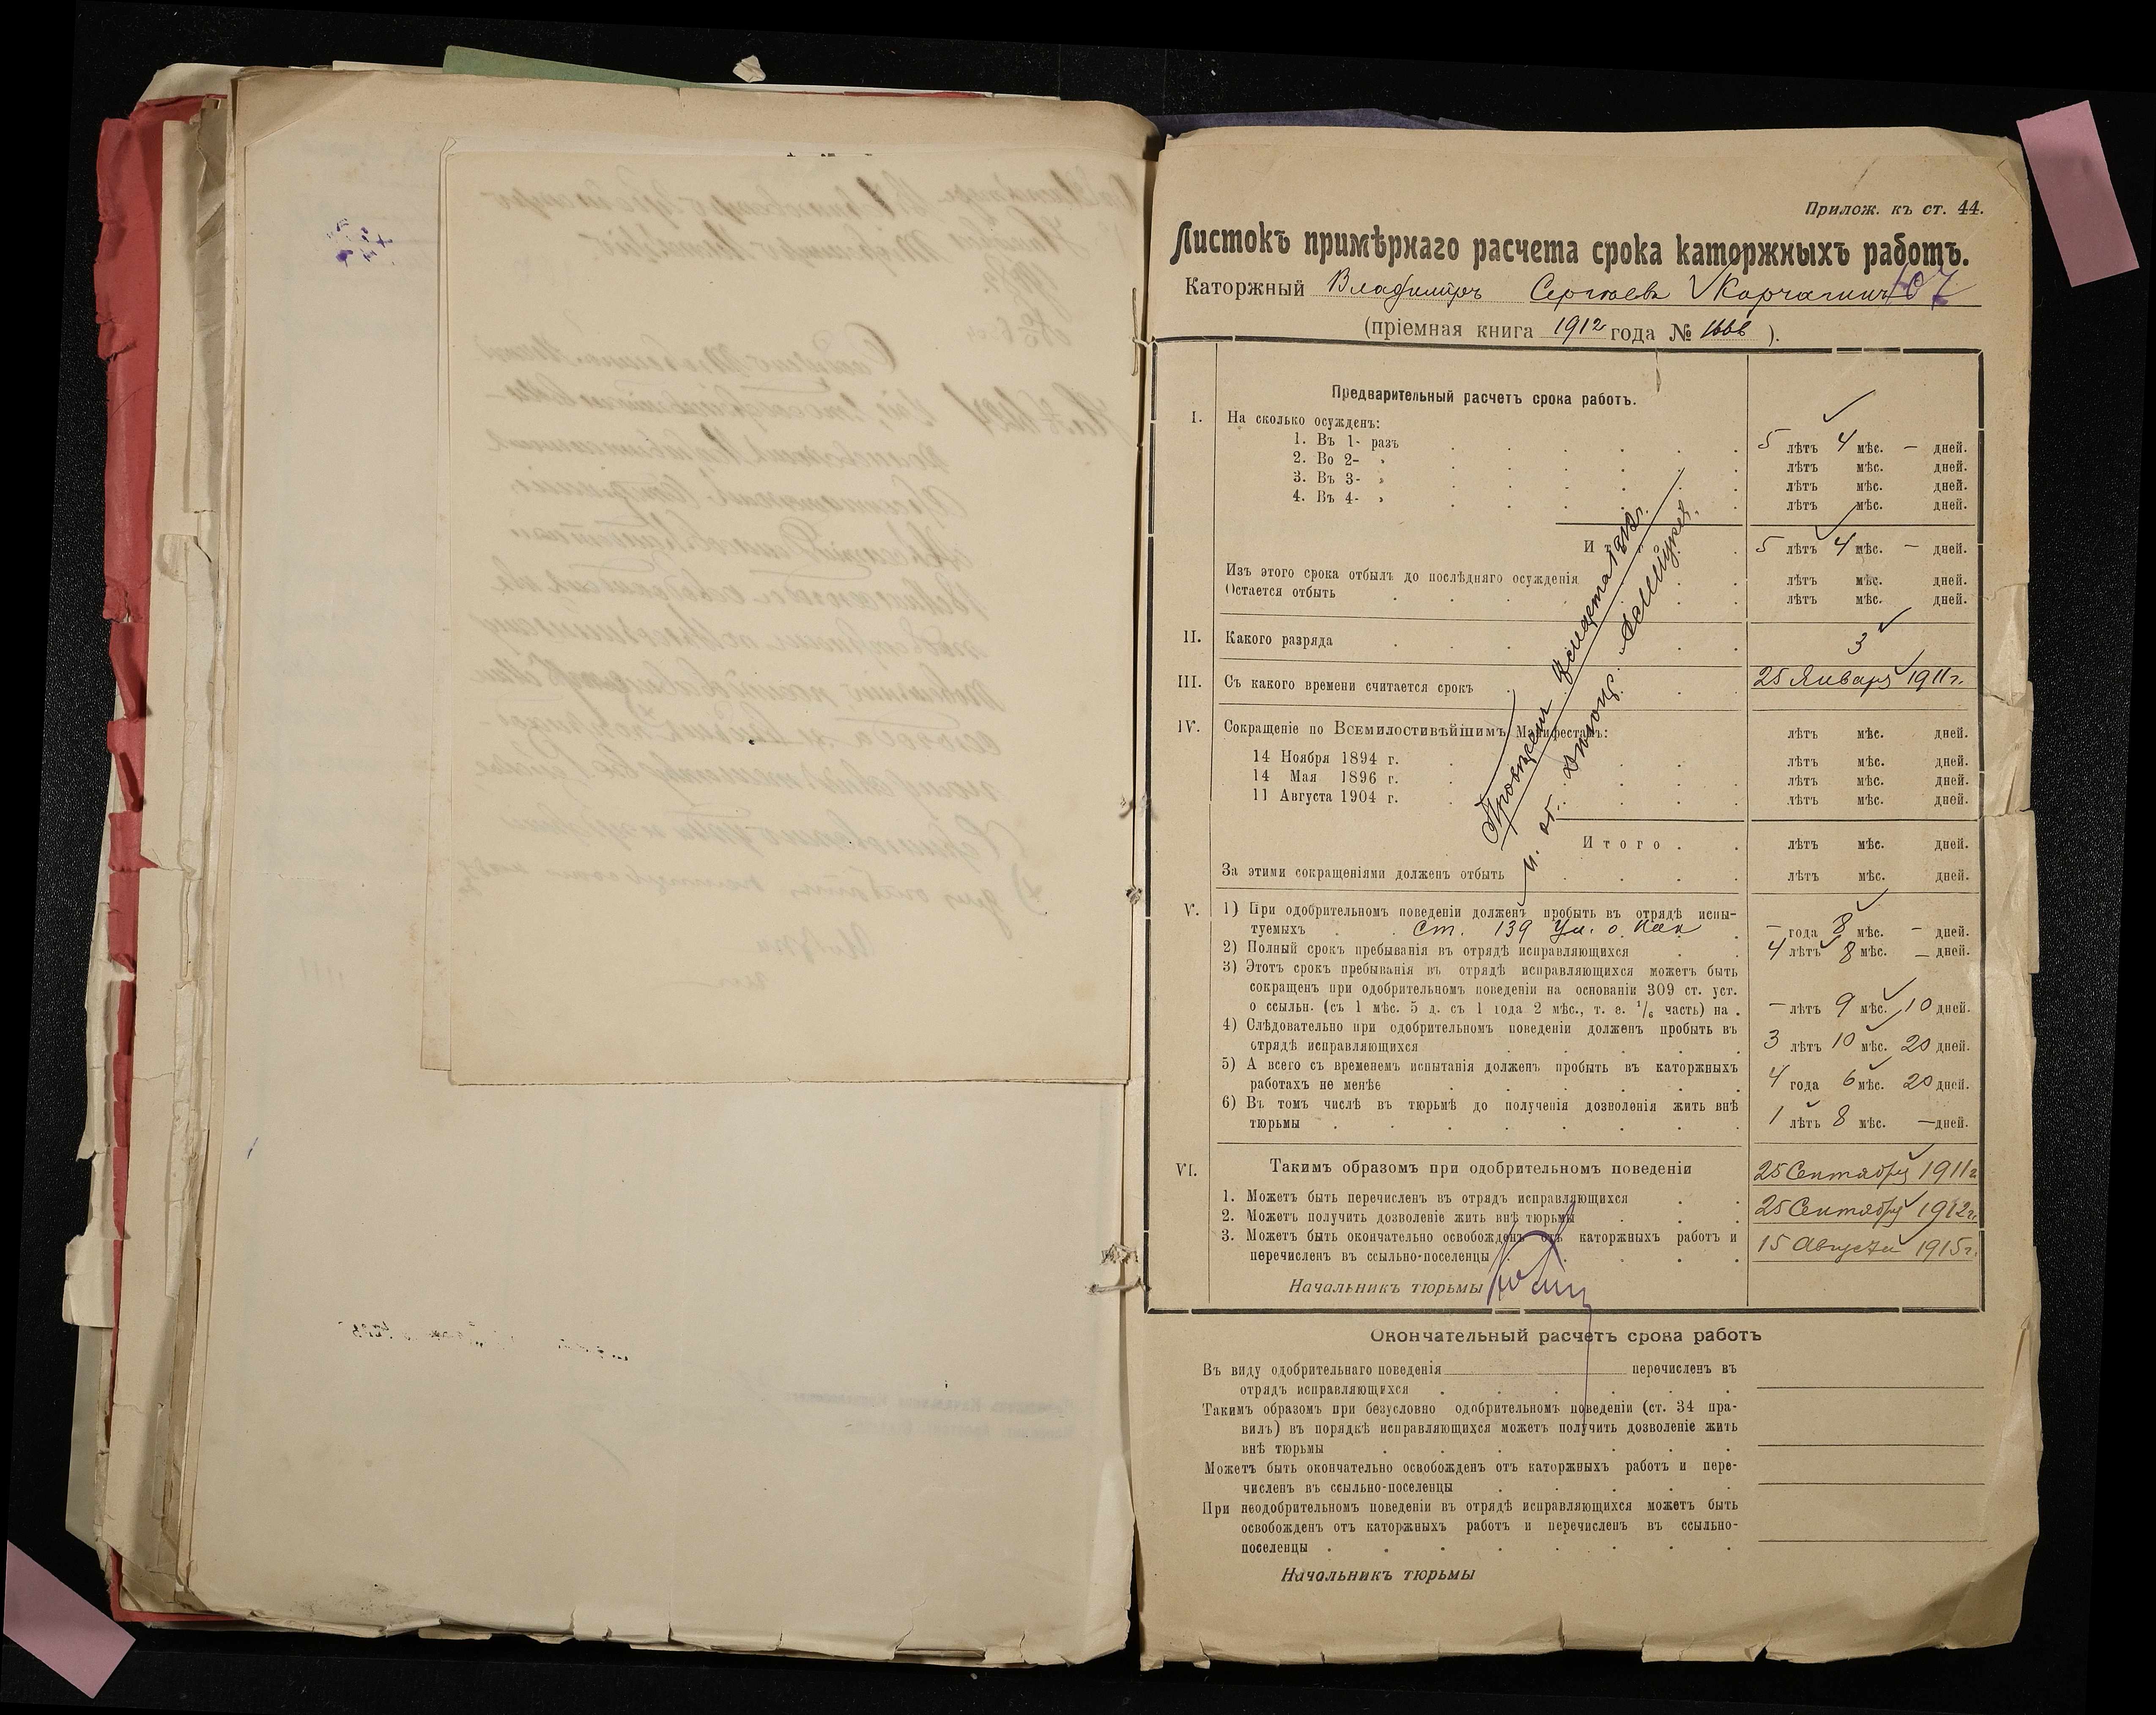 Прилож. къ ст. 44.
Листокъ примѣрнаго расчета срока каторжныхъ работъ.
Каторжный Владимiръ Сергѣевъ Корчагинъ 107
(прiемная книга 1912 года № 1666 ).
Предварительный расчетъ срока работъ.
I. На сколько осужденъ:
1. Въ 1- разъ 5 лѣтъ 4 мѣс. — дней.
2. Во 2- » лѣтъ мѣс. дней.
3. Въ 3- » лѣтъ мѣс. дней.
4. Въ 4- » лѣтъ мѣс. дней.
Итого 5 лѣтъ 4 мѣс. — дней.
Изъ этого срока отбылъ до послѣдняго осужденiя лѣтъ мѣс. дней.
Остается отбыть лѣтъ мѣс. дней.
II. Какого разряда 3
III. Съ какого времени считается срокъ 25 Января 1911 г.
IV. Сокращенiе по Всемилостивѣйшимъ Манифестамъ: лѣтъ мѣс. дней.
14 Ноября 1894 г. лѣтъ мѣс. дней.
14 Мая 1896 г. лѣтъ мѣс. дней.
11 Августа 1904 г. лѣтъ мѣс. дней.
Итого лѣтъ мѣс. дней.
За этими сокращенiями долженъ отбыть лѣтъ мѣс. дней.
V. 1) При одобрительномъ поведенiи долженъ пробыть въ отрядѣ испы-
туемыхъ ст. 139 Ул. о Нак — года 8 мѣс. — дней.
2) Полный срокъ пребыванiя въ отрядѣ исправляющихся 4 лѣтъ 8 мѣс. — дней.
3) Этотъ срокъ пребыванiя въ отрядѣ исправляющихся можетъ быть
сокращенъ при одобрительномъ поведенiи на основанiи 309 ст. уст.
о ссыльн. (съ 1 мѣс. 5 д. съ 1 года 2 мѣс., т. е. 1/6 часть) на — лѣтъ 9 мѣс. 10 дней.
4) Слѣдовательно при одобрительномъ поведенiи долженъ пробыть въ
отрядѣ исправляющихся 3 лѣтъ 10 мѣс. 20 дней.
5) А всего съ временемъ испытанiя долженъ пробыть въ каторжныхъ
работахъ не менѣе 4 года 6 мѣс. 20 дней.
6) Въ томъ числѣ въ тюрьмѣ до полученiя дозволенiя жить внѣ
тюрьмы 1 лѣтъ 8 мѣс. — дней.
VI. Такимъ образомъ при одобрительномъ поведенiи
1. Можетъ быть перечисленъ въ отрядъ исправляющихся 25 Сентября 1911 г.
2. Можетъ получить дозволенiе жить внѣ тюрьмы 25 Сентября 1912 г.
3. Можетъ быть окончательно освобожденъ отъ каторжныхъ работъ и
перечисленъ въ ссыльно-поселенцы 15 Августа 1915 г.
Начальникъ тюрьмы
Окончательный расчетъ срока работъ
Въ виду одобрительнаго поведенiя перечисленъ въ
отрядъ исправляющихся
Такимъ образомъ при безусловно одобрительномъ поведенiи (ст. 34 пра-
вилъ) въ порядкѣ исправляющихся можетъ получить дозволенiе жить
внѣ тюрьмы
Можетъ быть окончательно освобожденъ отъ каторжныхъ работъ и пере-
численъ въ ссыльно-поселенцы
При неодобрительномъ поведенiи въ отрядѣ исправляющихся можетъ быть
освобожденъ отъ каторжныхъ работъ и перечисленъ въ ссыльно-
поселенцы
Начальникъ тюрьмы